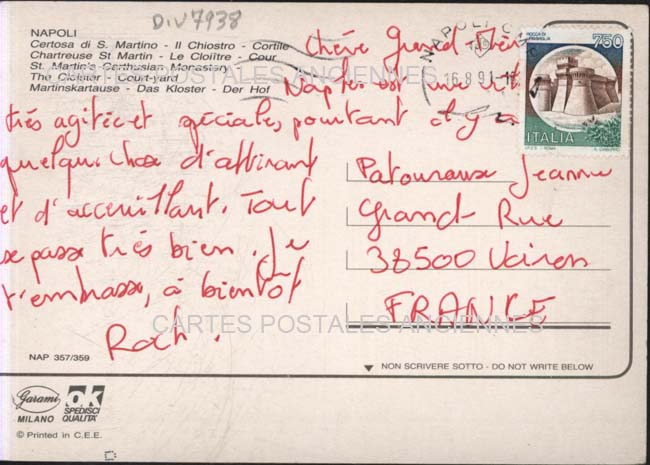 DIV7938
NAPOLI
Certosa di S. Martino - Il Chiostro - Cortile
Chartreuse St Martin - Le Cloître - Cour
St. Martin's Carthusian Monastery
The Cloister - Court-yard
Martinskartause - Das Kloster - Der Hof
NAPOLI
16.8.91
ROCCA DI
750
ITALIA
CARTES POSTALES ANCIENNES
Chère Grand Mère
Naples est une vill
très agitée et spéciale, pourtant il y a
quelque chose d'attirant
et d'acceuillant. Tout
se passe très bien. Je
t'embrasse, à bientôt
Roch.
Patouraux Jeanne
Grand Rue
38500 Voiron
FRANCE
CARTES POSTALES ANCIENNES
NAP 357/359
NON SCRIVERE SOTTO - DO NOT WRITE BELOW
Garami
MILANO
OK
SPEDISCI
QUALITA'
© Printed in C.E.E.